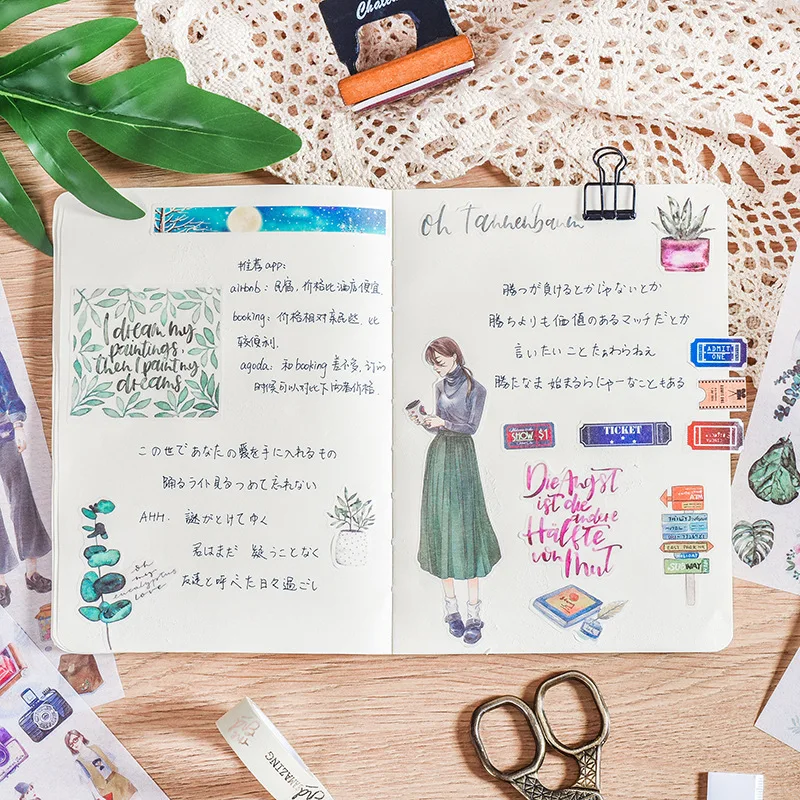 推荐app:
airbnb: 民宿,价格比酒店便宜.
booking: 价格相对亲民些,比
较便利.
agoda: 和booking 差不多,订的
时候可以对比下两者价格.
I dream my
paintings,
then I paint my
dreams
この世であなたの愛を手に入れるもの
踊るライト見るつめて忘れない
AHH. 謎がとけてゆく
君はまだ 疑うことなく
友達と呼べた日々過ごし
oh
my
eucalyptus
love
oh Tannenbaum
勝つが負けるとかじゃないとか
勝ちよりも価値のあるマッチだとか
言いたいことたぁわらねぇ
勝たなま 始まるらにゃーなこともある
ADMIT
ONE
SHOW $1
TICKET
Die Angst
ist die
andere
Hälfte
von Mut
SUBWAY
AMAZING